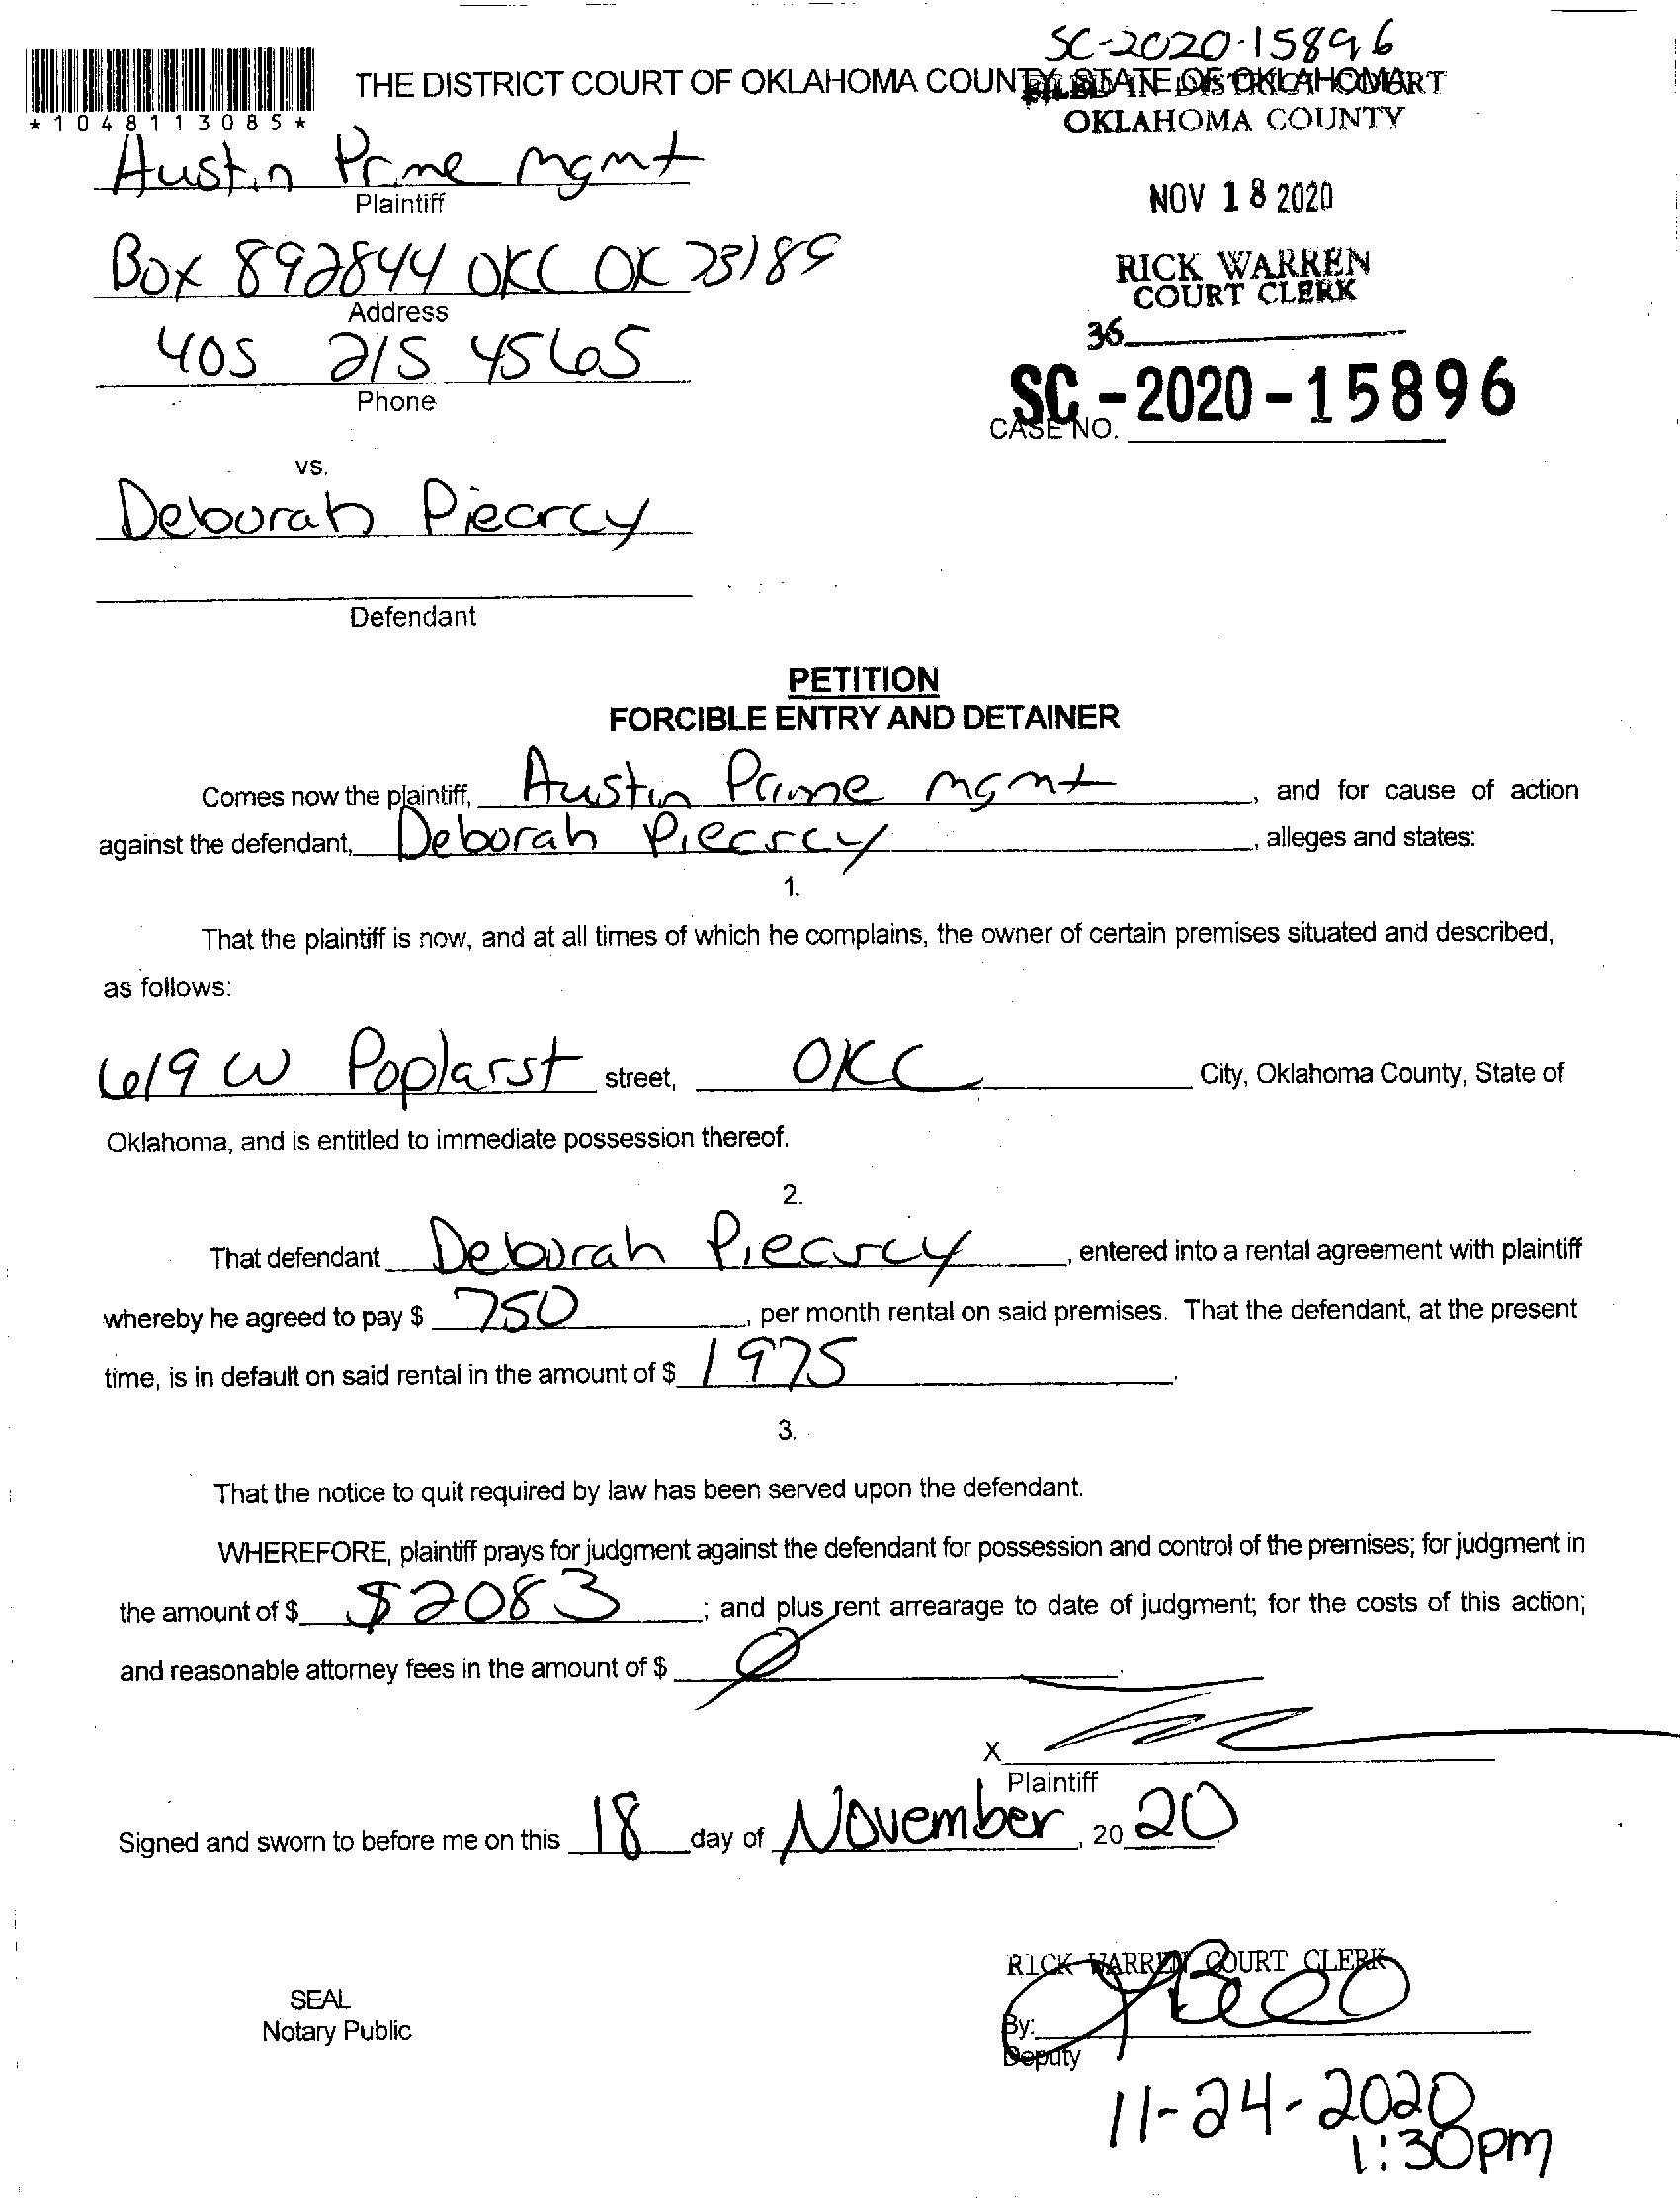 SC-2020-15896
THE DISTRICT COURT OF OKLAHOMA COUNTY, STATE OF OKLAHOMA
FILED IN DISTRICT COURT
OKLAHOMA COUNTY
*1048113085*
Austin Prime Mgmt
Plaintiff
NOV 18 2020
Box 892844 OKC OK 73189
Address
RICK WARREN
COURT CLERK
405 215 4565
Phone
36
SC-2020-15896
CASE NO.
vs.
Deborah Piearcy
Defendant
PETITION
FORCIBLE ENTRY AND DETAINER
Comes now the plaintiff, Austin Prime mgmt, and for cause of action
against the defendant, Deborah Piearcy, alleges and states:
1.
That the plaintiff is now, and at all times of which he complains, the owner of certain premises situated and described,
as follows:
619 W Poplar st street, OKC City, Oklahoma County, State of
Oklahoma, and is entitled to immediate possession thereof.
2.
That defendant Deborah Piearcy, entered into a rental agreement with plaintiff
whereby he agreed to pay $ 750, per month rental on said premises. That the defendant, at the present
time, is in default on said rental in the amount of $ 1975.
3.
That the notice to quit required by law has been served upon the defendant.
WHEREFORE, plaintiff prays for judgment against the defendant for possession and control of the premises; for judgment in
the amount of $ $2083; and plus rent arrearage to date of judgment; for the costs of this action;
and reasonable attorney fees in the amount of $ 0.
X
Plaintiff
Signed and sworn to before me on this 18 day of November, 2020
RICK WARREN COURT CLERK
SEAL
Notary Public
By:
Deputy
11-24-2020
1:30pm